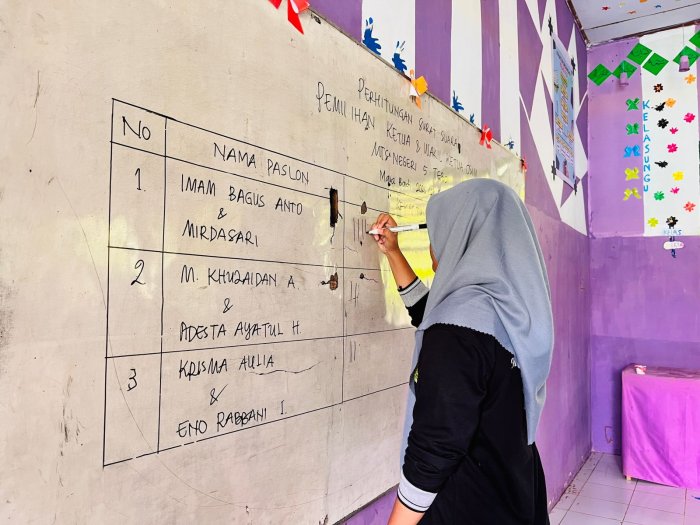 PERHITUNGAN SURAT SUARA
PEMILIHAN KETUA & WAKIL KETUA
MTS NEGERI 5
No
NAMA PASLON
1.
IMAM BAGUS ANTO
&
MIRDASARI
2
M. KHUZAIDAN A.
&
ADESTA AYATUL H
3
KRISMA AULIA
&
ENO RABBANI I.
KELAS UNGU